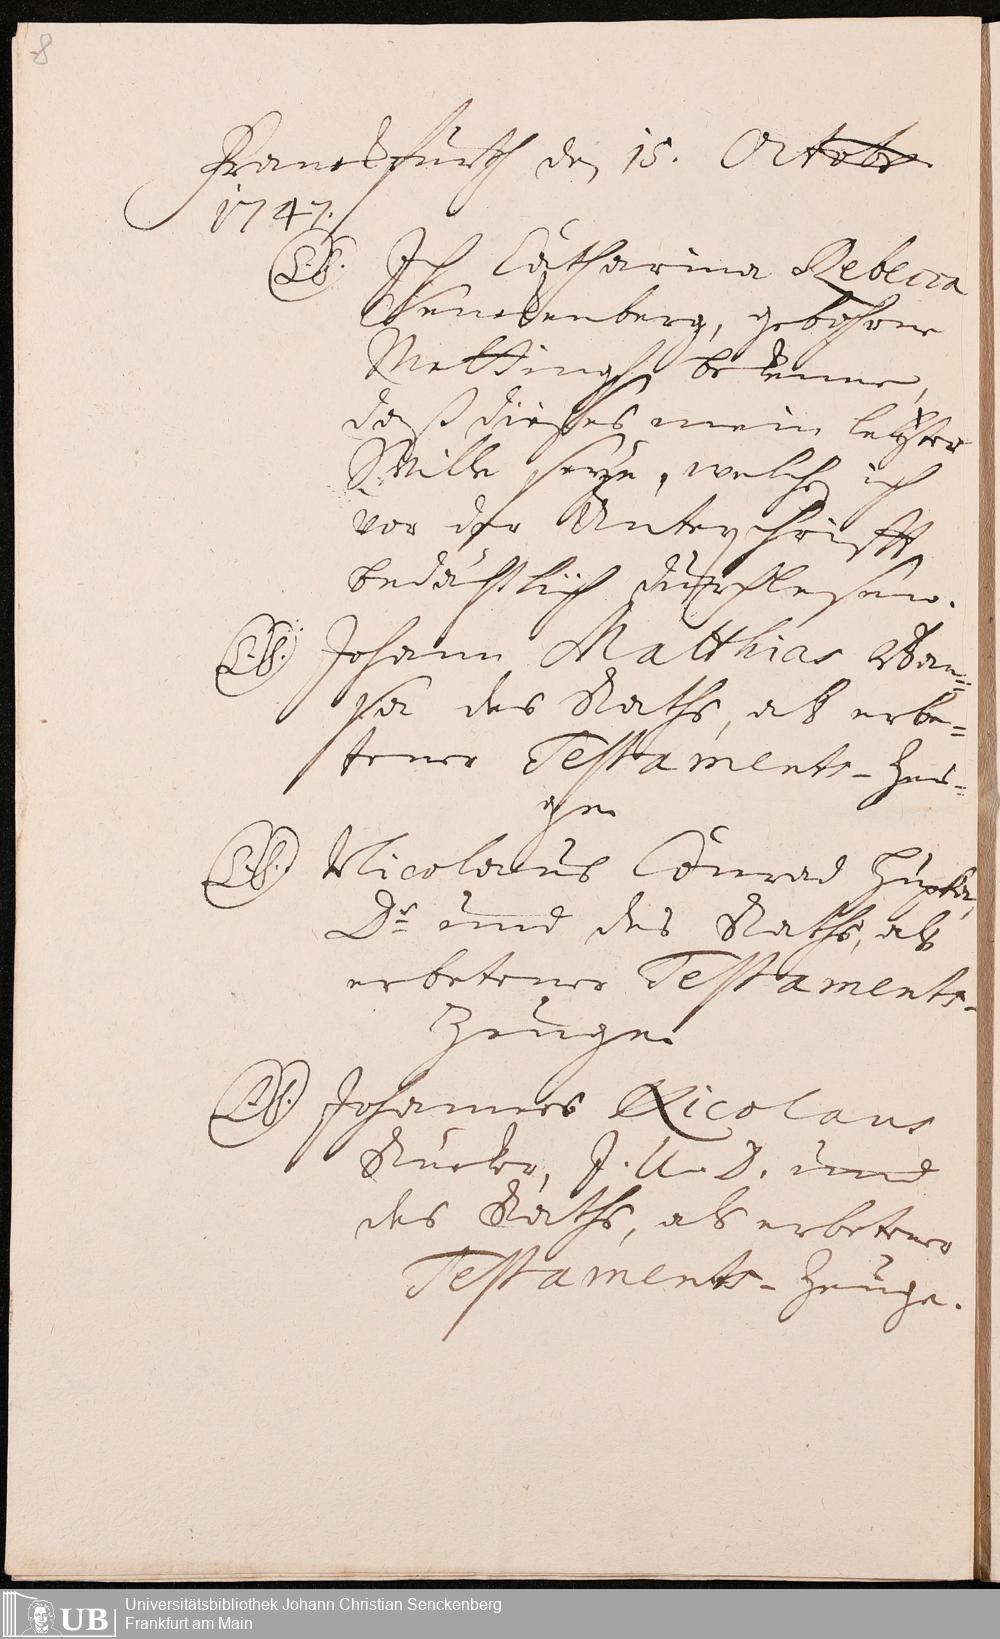 8
Franckfurth den 15. Octobr.
1747.
L.S. Ich Catharina Rebecca
Senckenberg, gebohrne
Mettingh bekenne,
daß dießes mein letzter
Wille seye, welchen ich
vor der Unterschrifft
bedächtlich durchlesen.
L.S. Johann Matthias Ban=
sa des Raths, als erbe=
tener Testaments-Zeu=
ge.
L.S. Nicolaus Conrad Hupka,
Dr. und des Raths, als
erbetener Testaments-
Zeuge.
L.S. Johannes Nicolaus
Rücker, J. U. D. und
des Raths, als erbetener
Testaments-Zeuge.
UB
Universitätsbibliothek Johann Christian Senckenberg
Frankfurt am Main